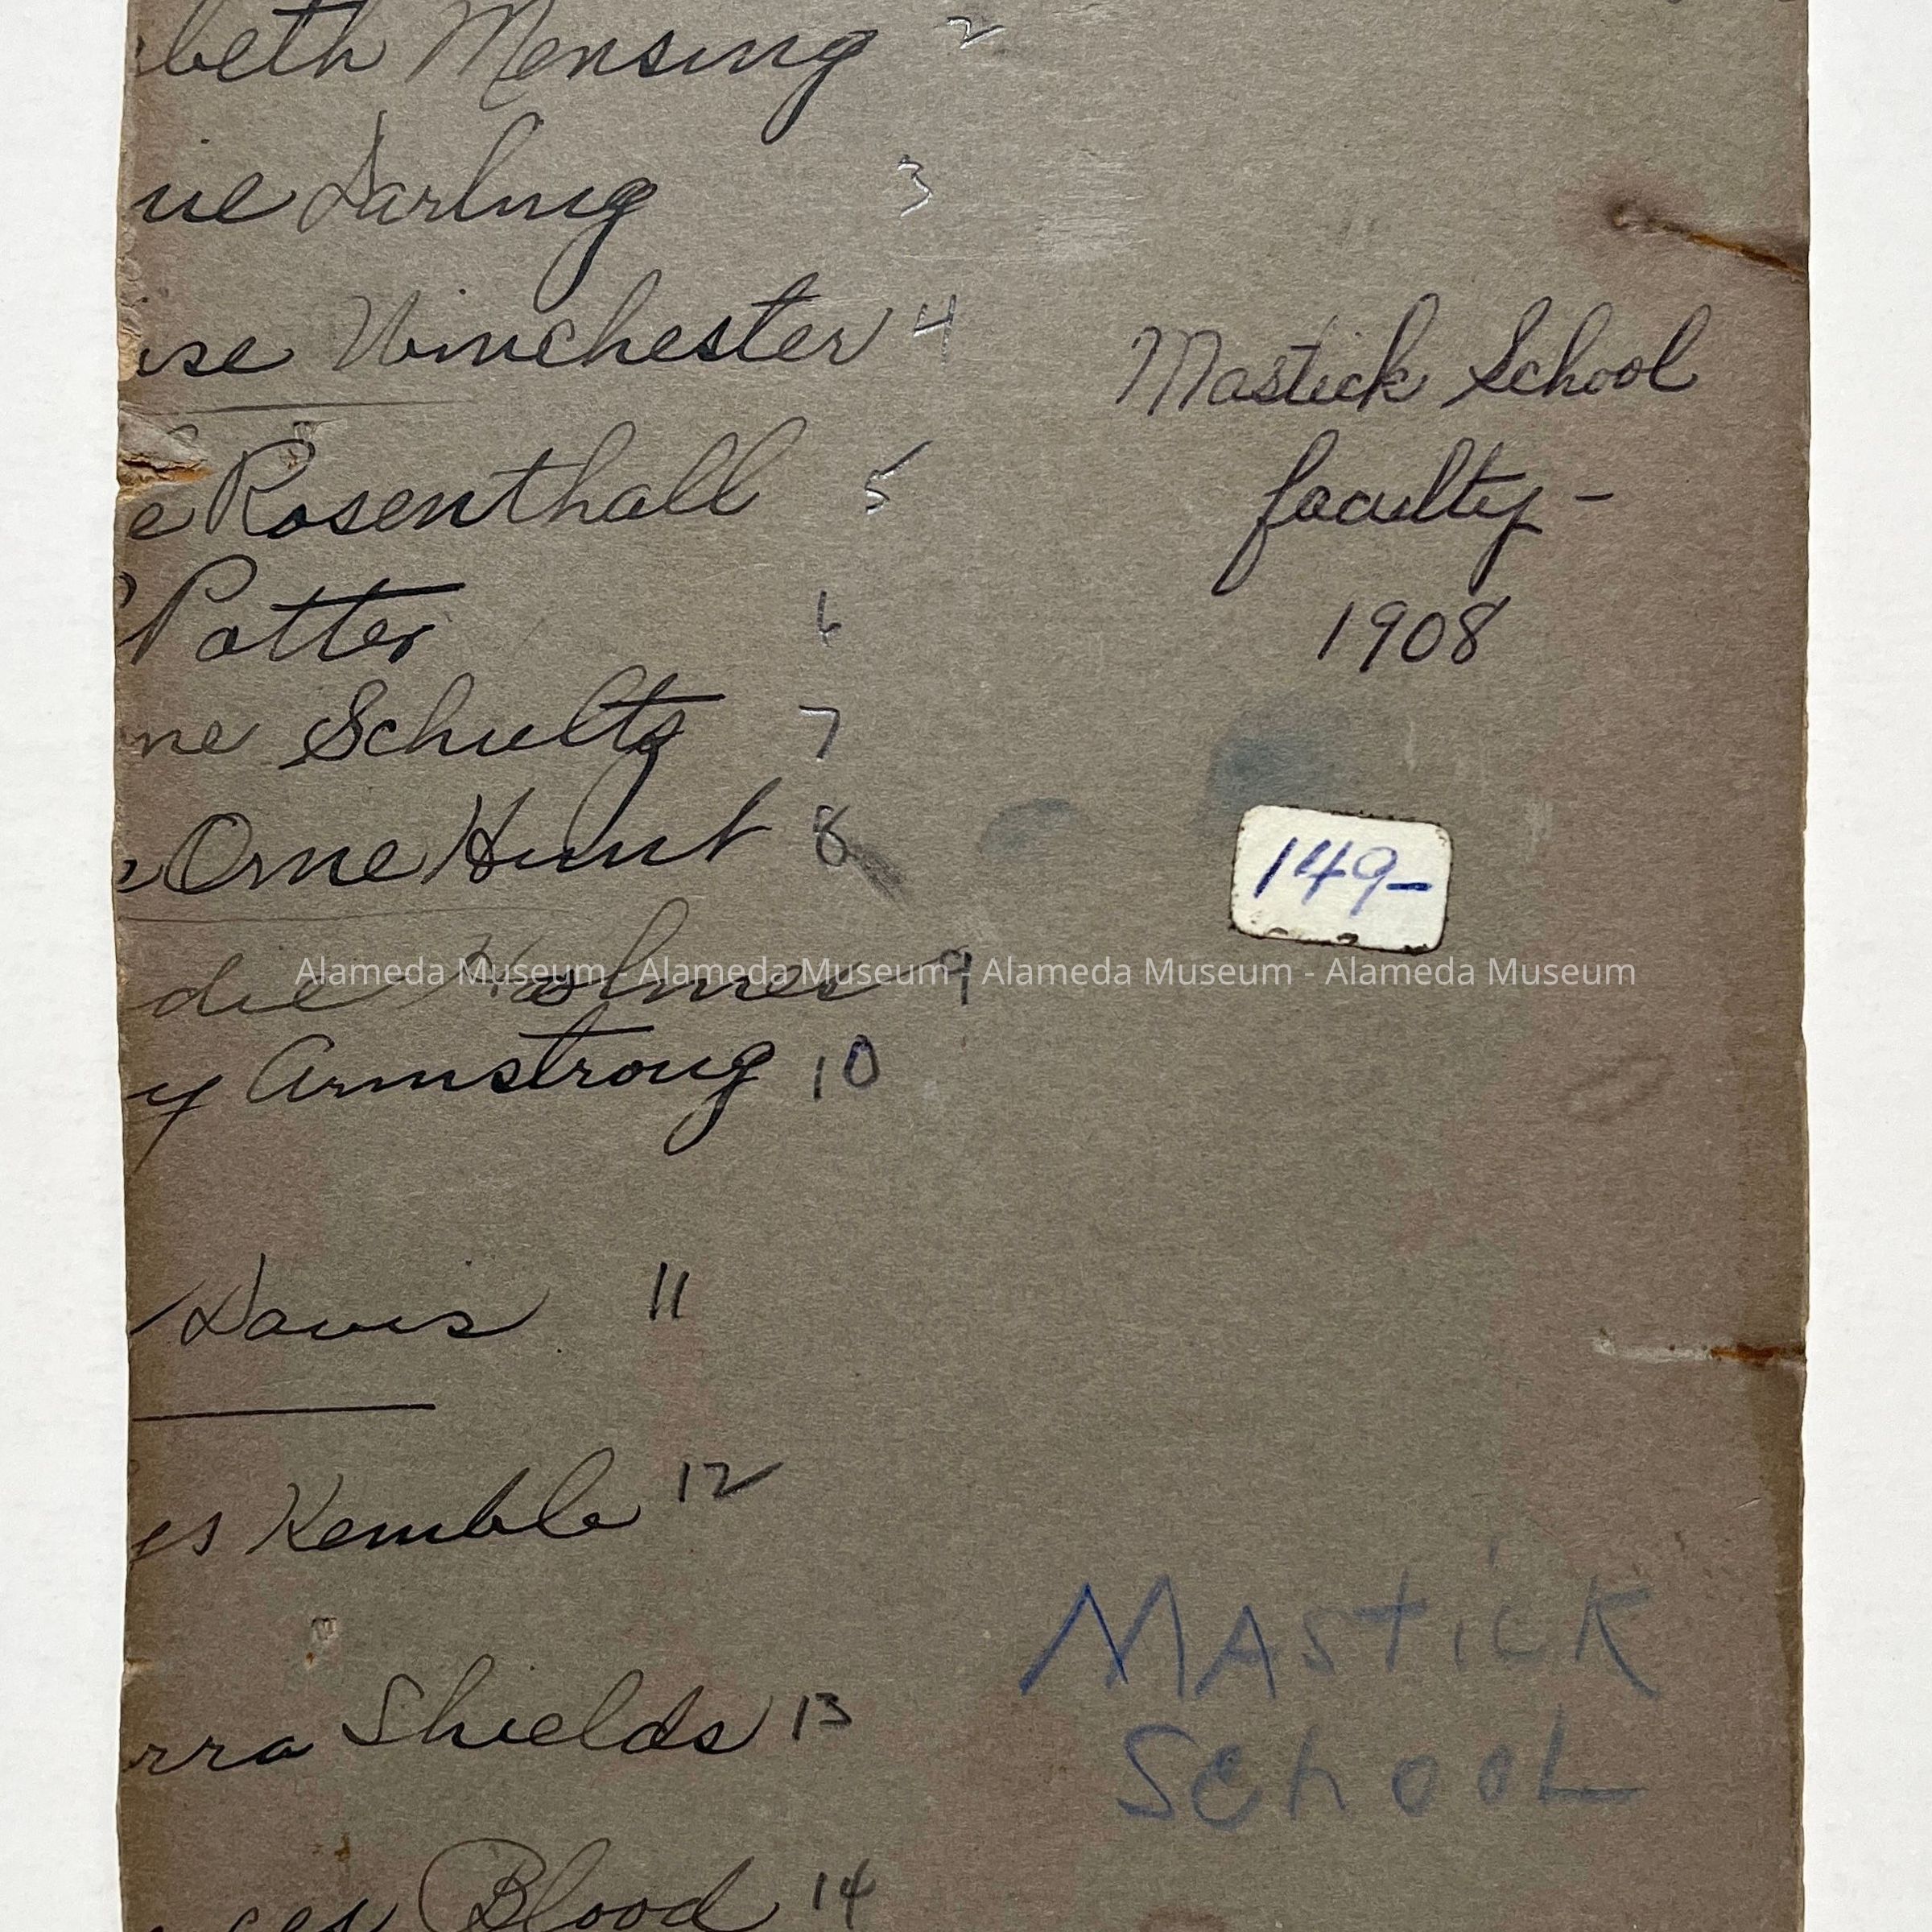 beth Mensing 2
ie Darling 3
ise Winchester 4
e Rosenthall 5
Potter 6
ne Schultz 7
Orne Hunt 8
die Holmes 9
y Armstrong 10
Davis 11
ys Kemble 12
rra Shields 13
ces Blood 14
Mastick School
faculty -
1908
149-
Alameda Museum - Alameda Museum - Alameda Museum - Alameda Museum
MAStick
SchooL